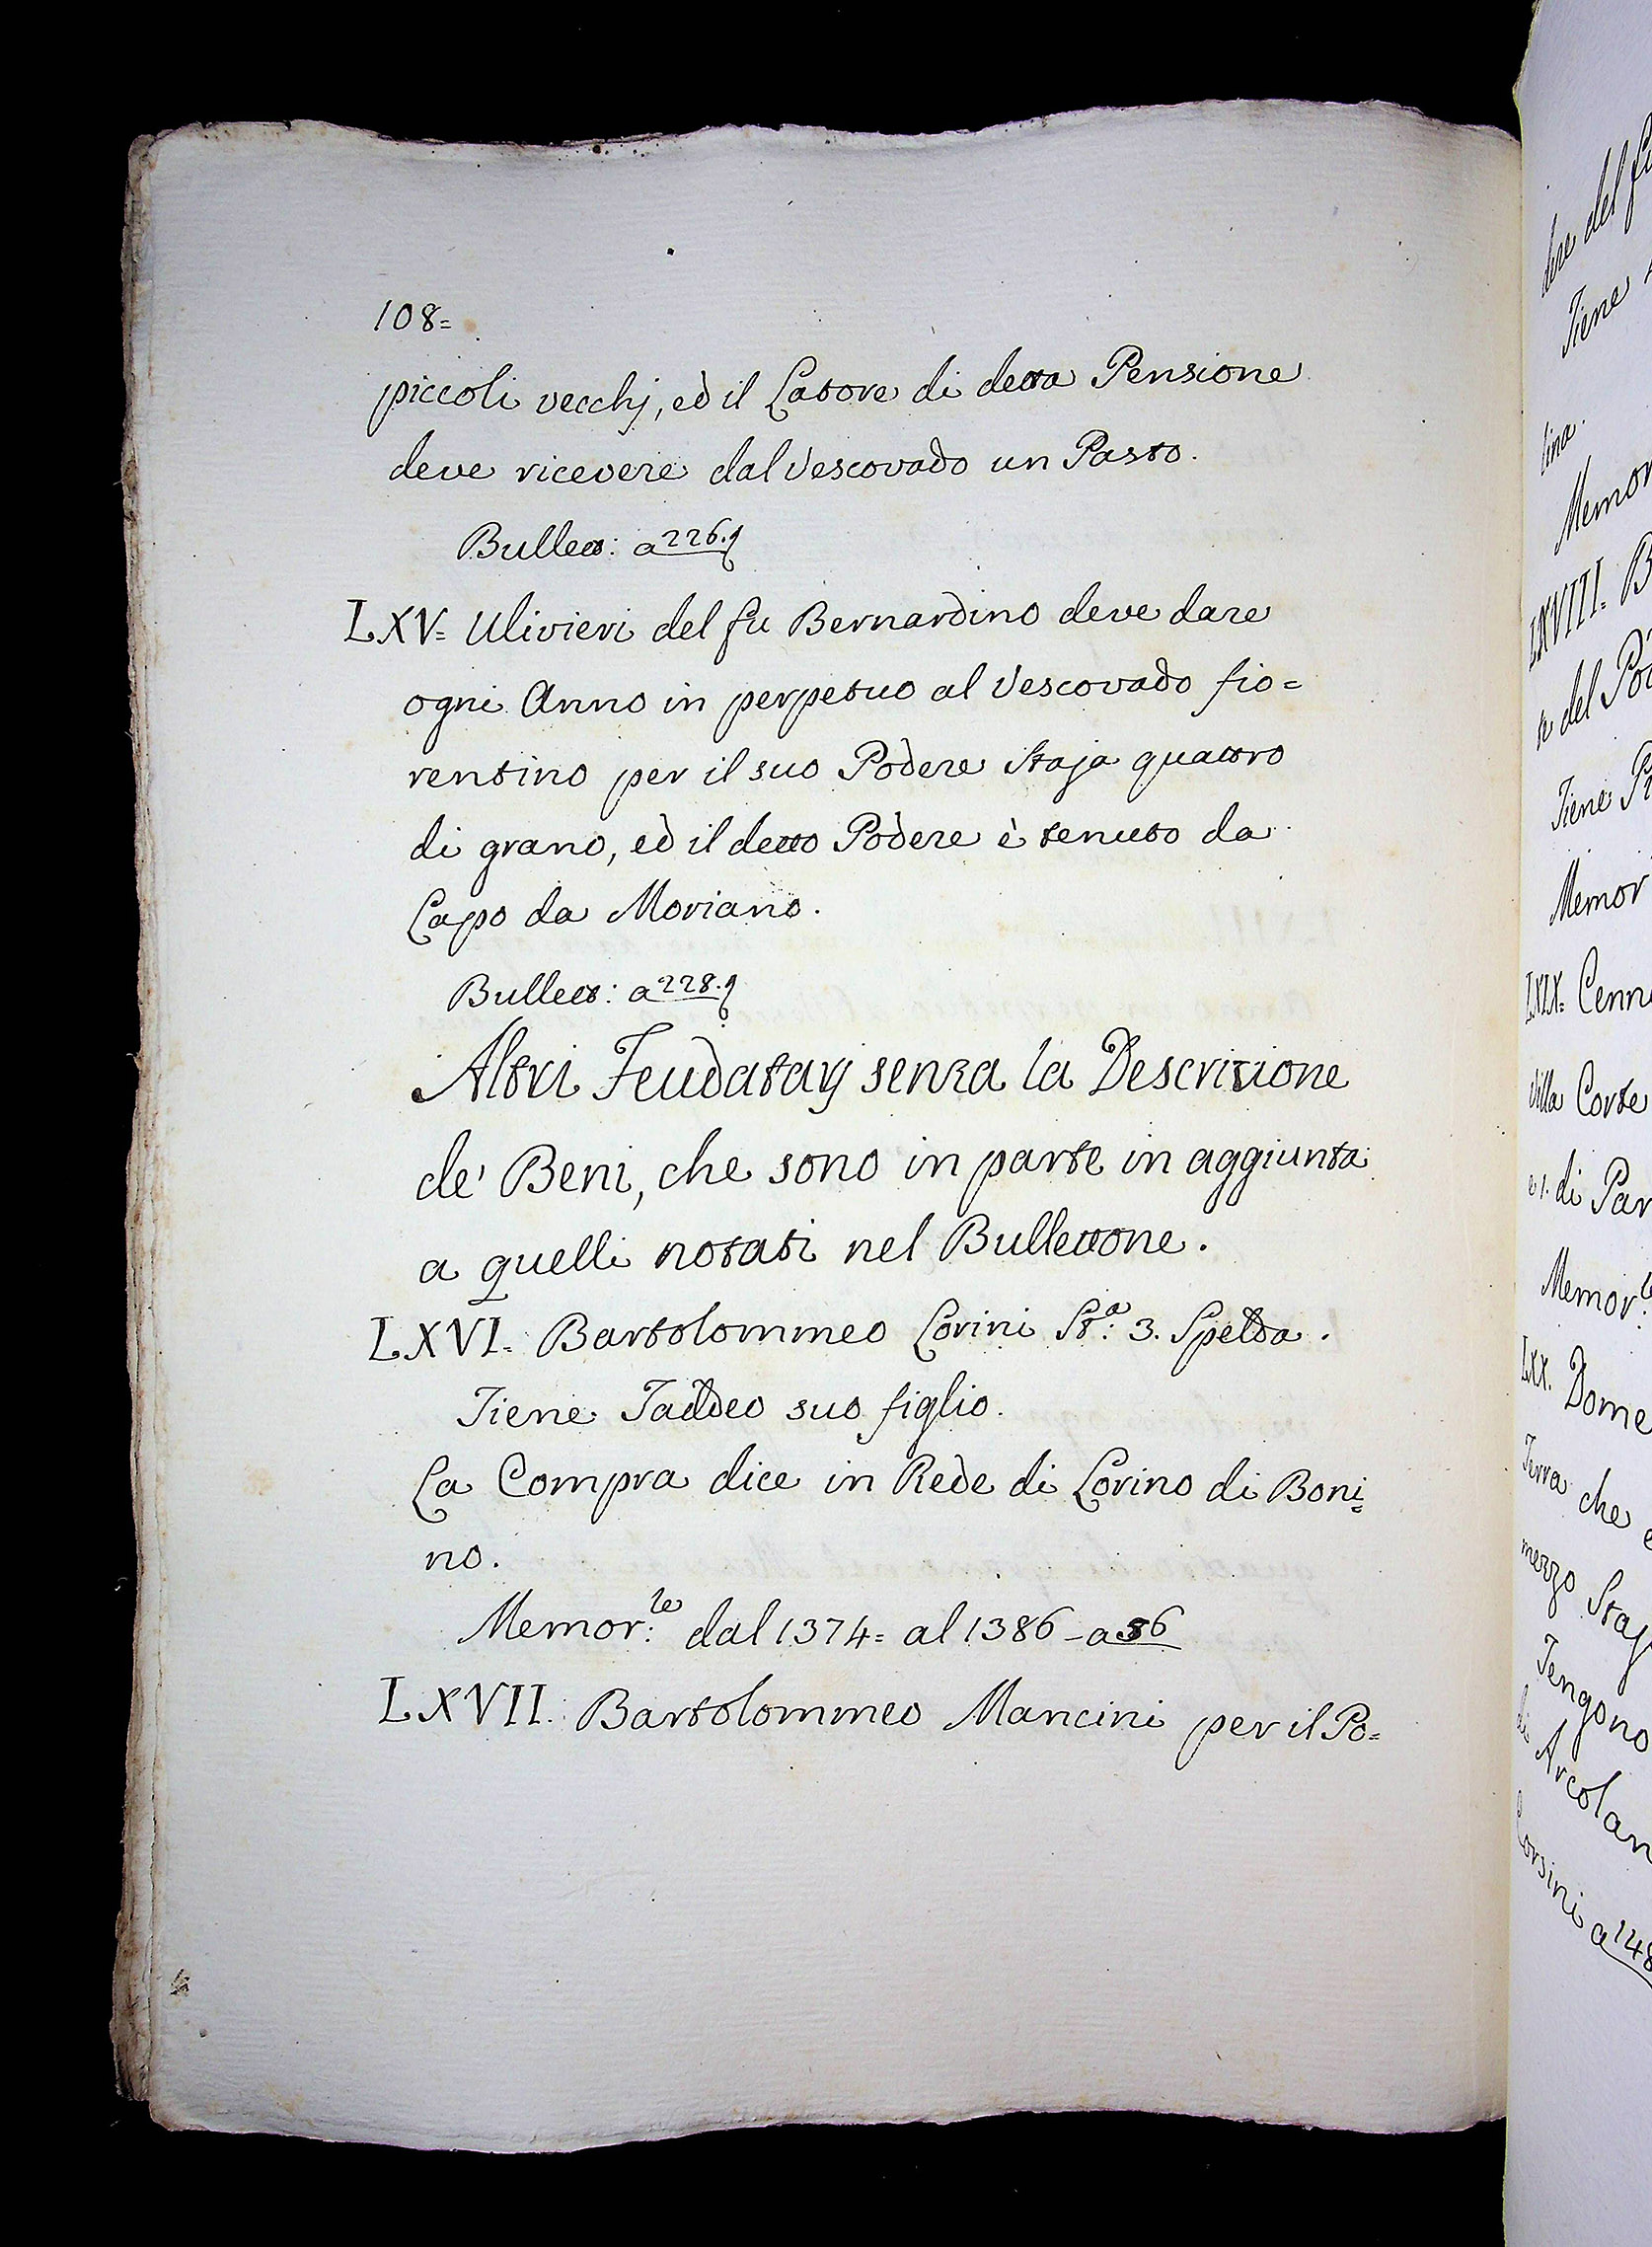 108=
piccoli vecchj, ed il Latore di detta Pensione
deve ricevere dal Vescovado un Pasto.
Bullett: a 226.
LXV= Ulivieri del fu Bernardino deve dare
ogni Anno in perpetuo al Vescovado fio=
rentino per il suo Podere Staja quattro
di grano, ed il detto Podere è tenuto da
Lapo da Moriano.
Bullett: a 228.
Altri Feudatarj senza la Descrizione
de' Beni, che sono in parte in aggiunta
a quelli notati nel Bullettone.
LXVI= Bartolommeo Lorini St.a: 3. Spelda.
Tiene Taddeo suo figlio.
La Compra dice in Rede di Lorino di Boni=
no.
Memor:le dal 1374= al 1386 - a 36
LXVII. Bartolommeo Mancini per il Po=
dre del
Tiene
lina.
Memor
LXVIII. B
del Po
Tiene
Memor
LXIX= Cenn
Villa Corte
di Par
Memor:
LXX. Dome
Terra che
mezzo Staj
Tengono
di Arcolan
Corsini a 148